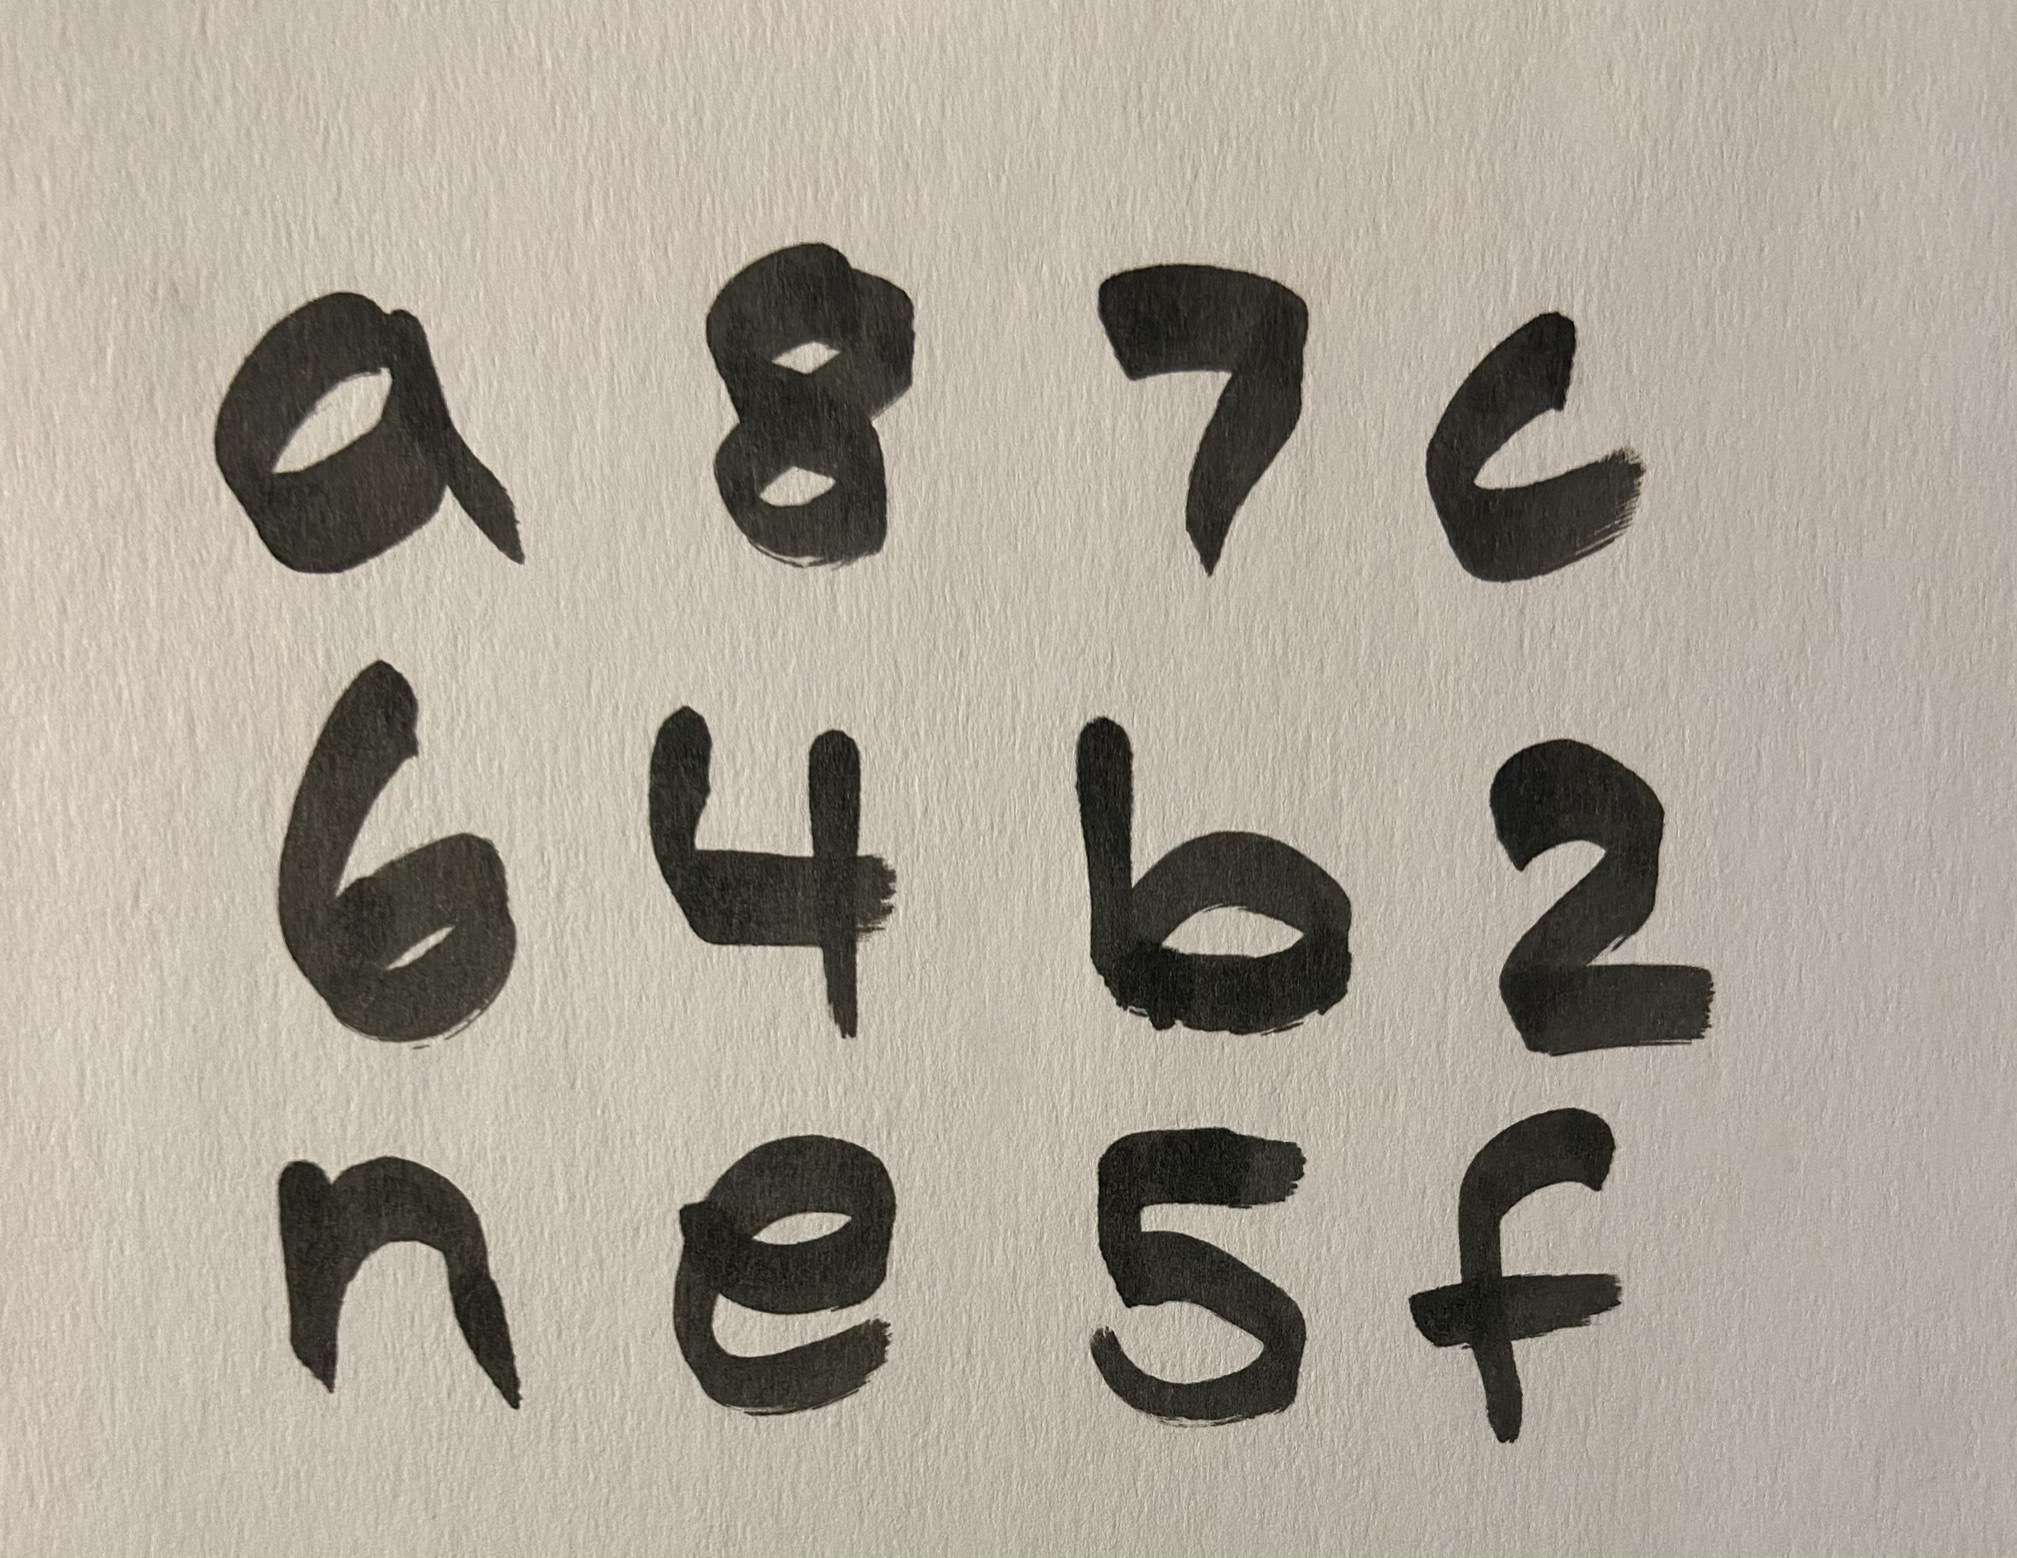 a 8 7 c
6 4 b 2
n e 5 f